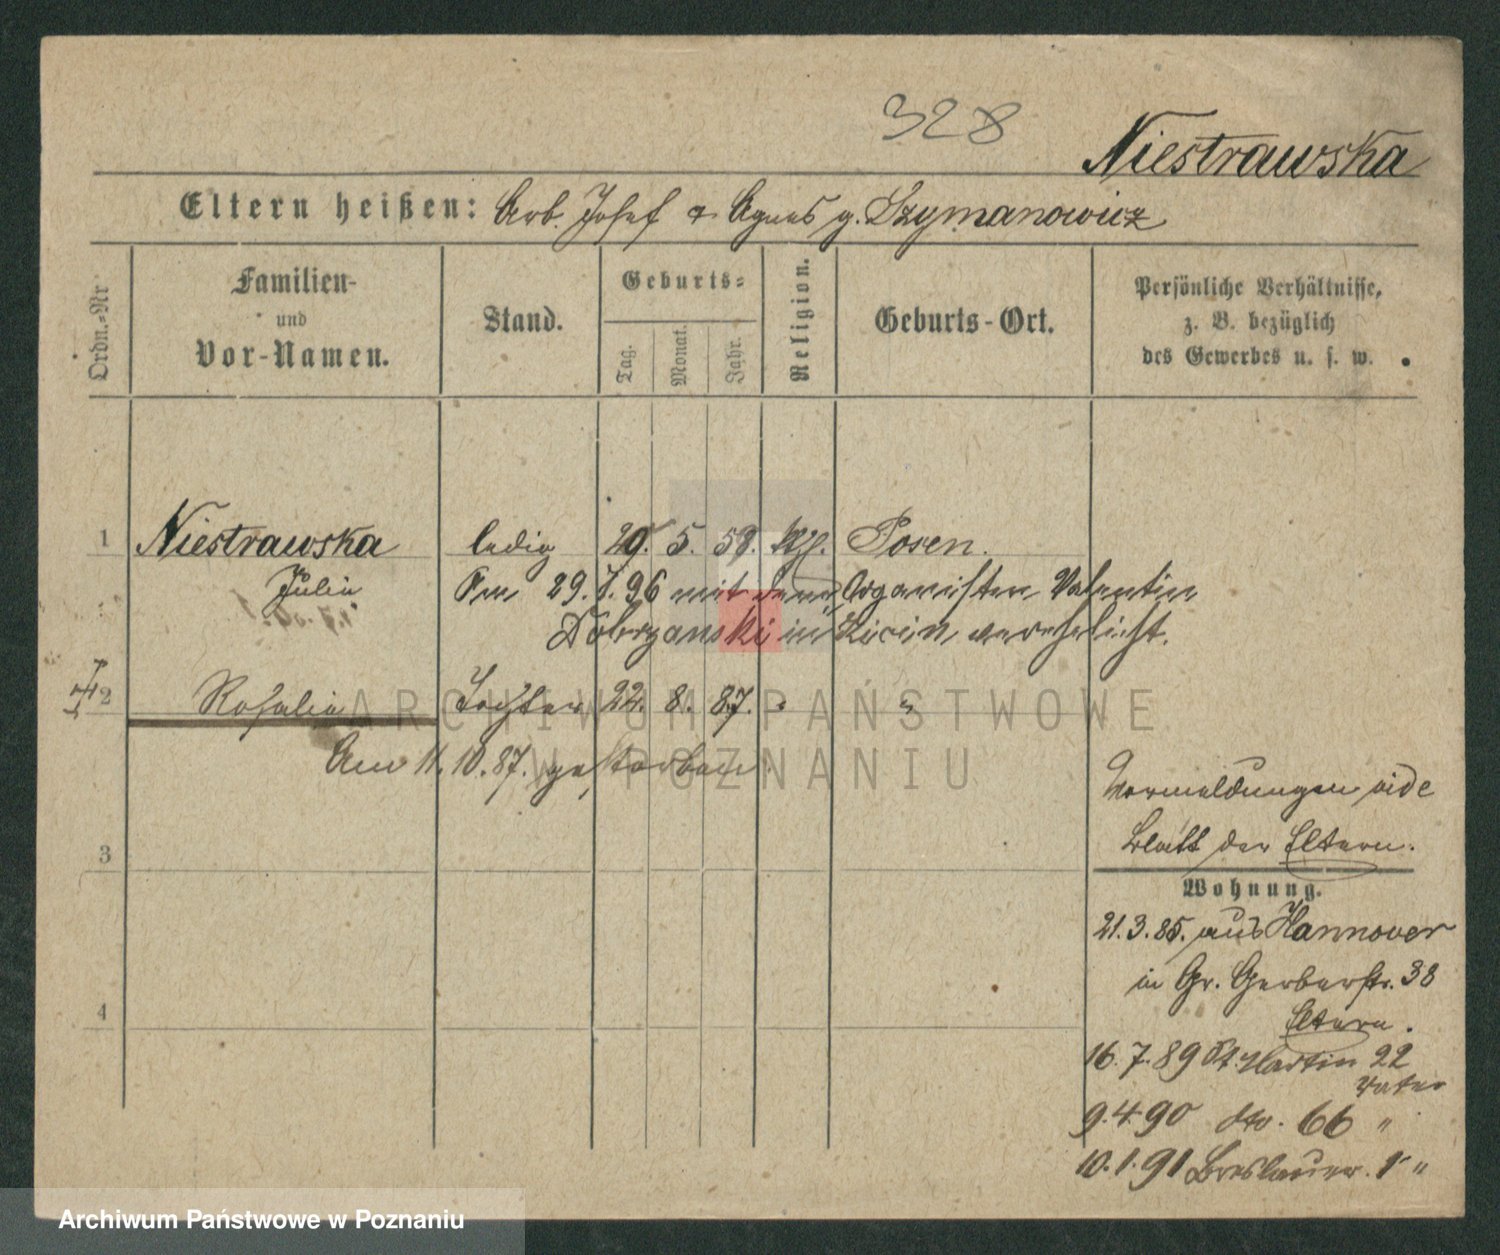 328
Niestrawska
Eltern heißen: Arb. Josef & Agnes g. Szymanowicz
Ordn.-Nr
Familien-
und
Vor-Namen.
Stand.
Geburts-
Tag.
Monat.
Jahr.
Religion.
Geburts-Ort.
Persönliche Verhältnisse,
z. B. bezüglich
des Gewerbes u. s. w.
1 Niestrawska ledig 29. 5. 58. kth. Posen.
Julia Am 29.7.96 mit dem Organisten Valentin
Dobrzanski in Kicin verehelicht.
2 Rosalia Tochter 22. 8. 87. " "
Am 11.10.87. gestorben.
ARCHIWUM PAŃSTWOWE
W POZNANIU
Vormeldungen vide
Blatt der Eltern.
3
Wohnung.
21.3.85. aus Hannover
in Gr. Gerberstr. 38
Eltern.
4
16.7.89 St. Martin 22
Vater
9.4.90 dto. 66 "
10.1.91 Breslauer. 1 "
Archiwum Państwowe w Poznaniu